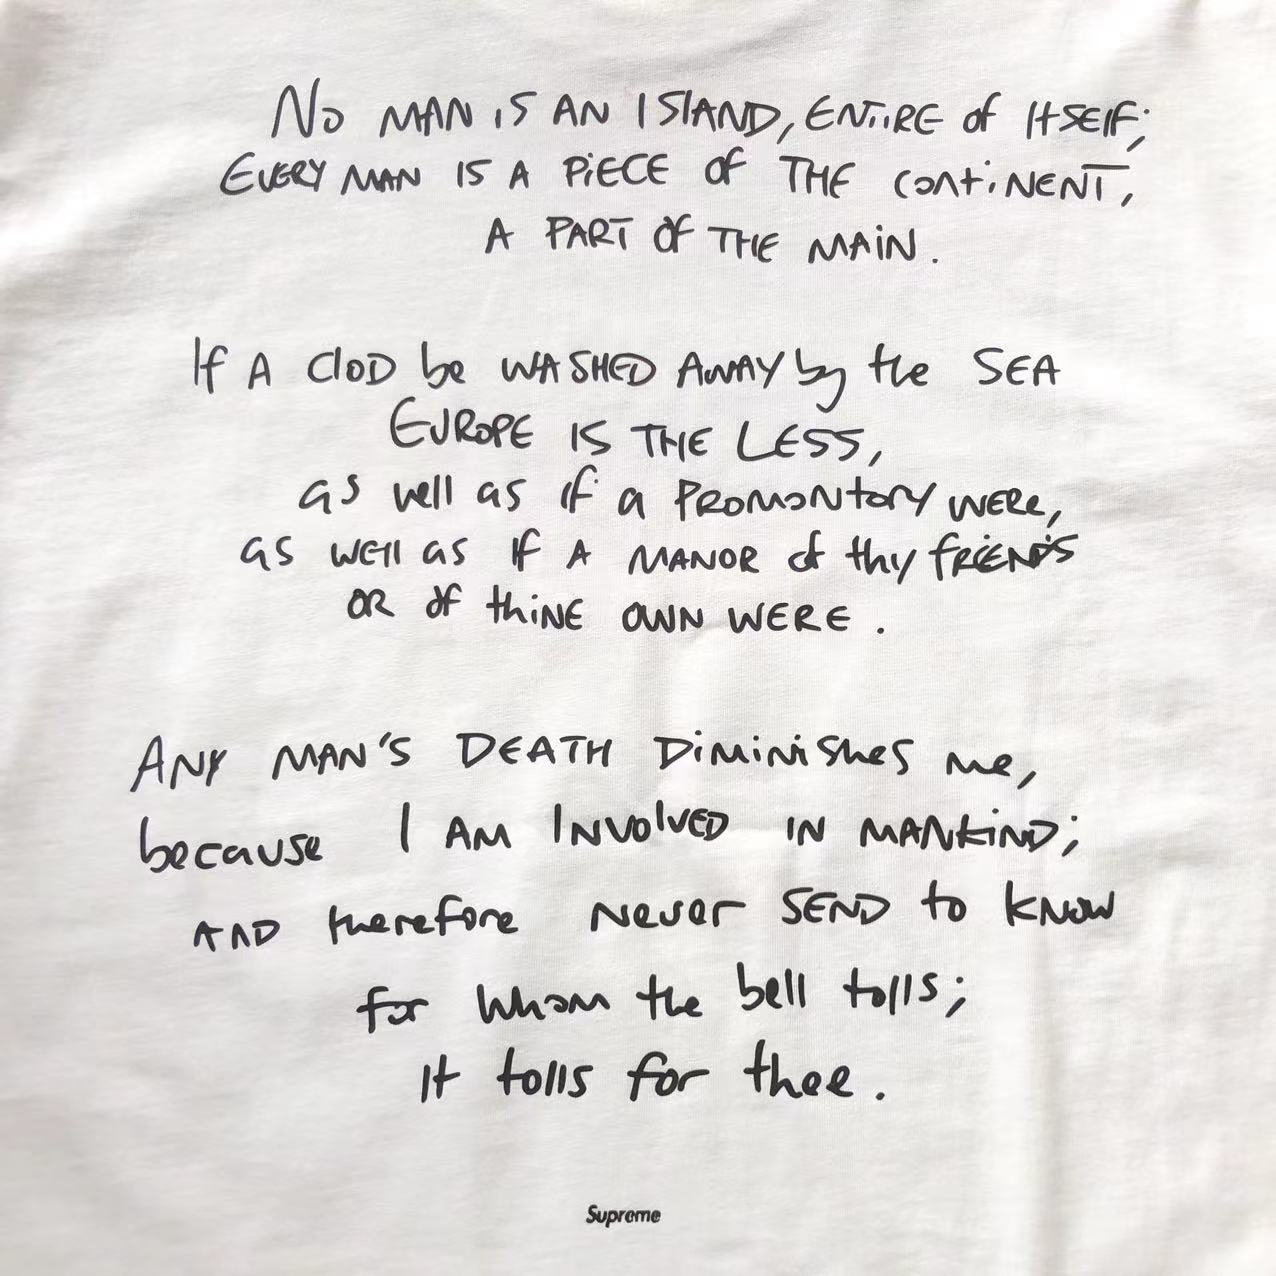 No MAN iS AN ISlAND, ENTiRE of ItSElf;
EVERY MAN IS A PiECE of THEContiNENT,
A PART of THE MAiN.
If A ClOD be WASHED AWAY by the SEA
EUROPE IS THE LESS,
as well as if a PROMONtORY WERE,
as WEll as If A MANOR of thy fRiENDS
OR of thiNE OWN WERE.
ANY MAN'S DEATH DiMiNiShes me,
because I AM INVolVED IN MANkiND;
AND therefore Never SEND to KNOW
for whom the bell tolls;
It tolls for thee.
Supreme